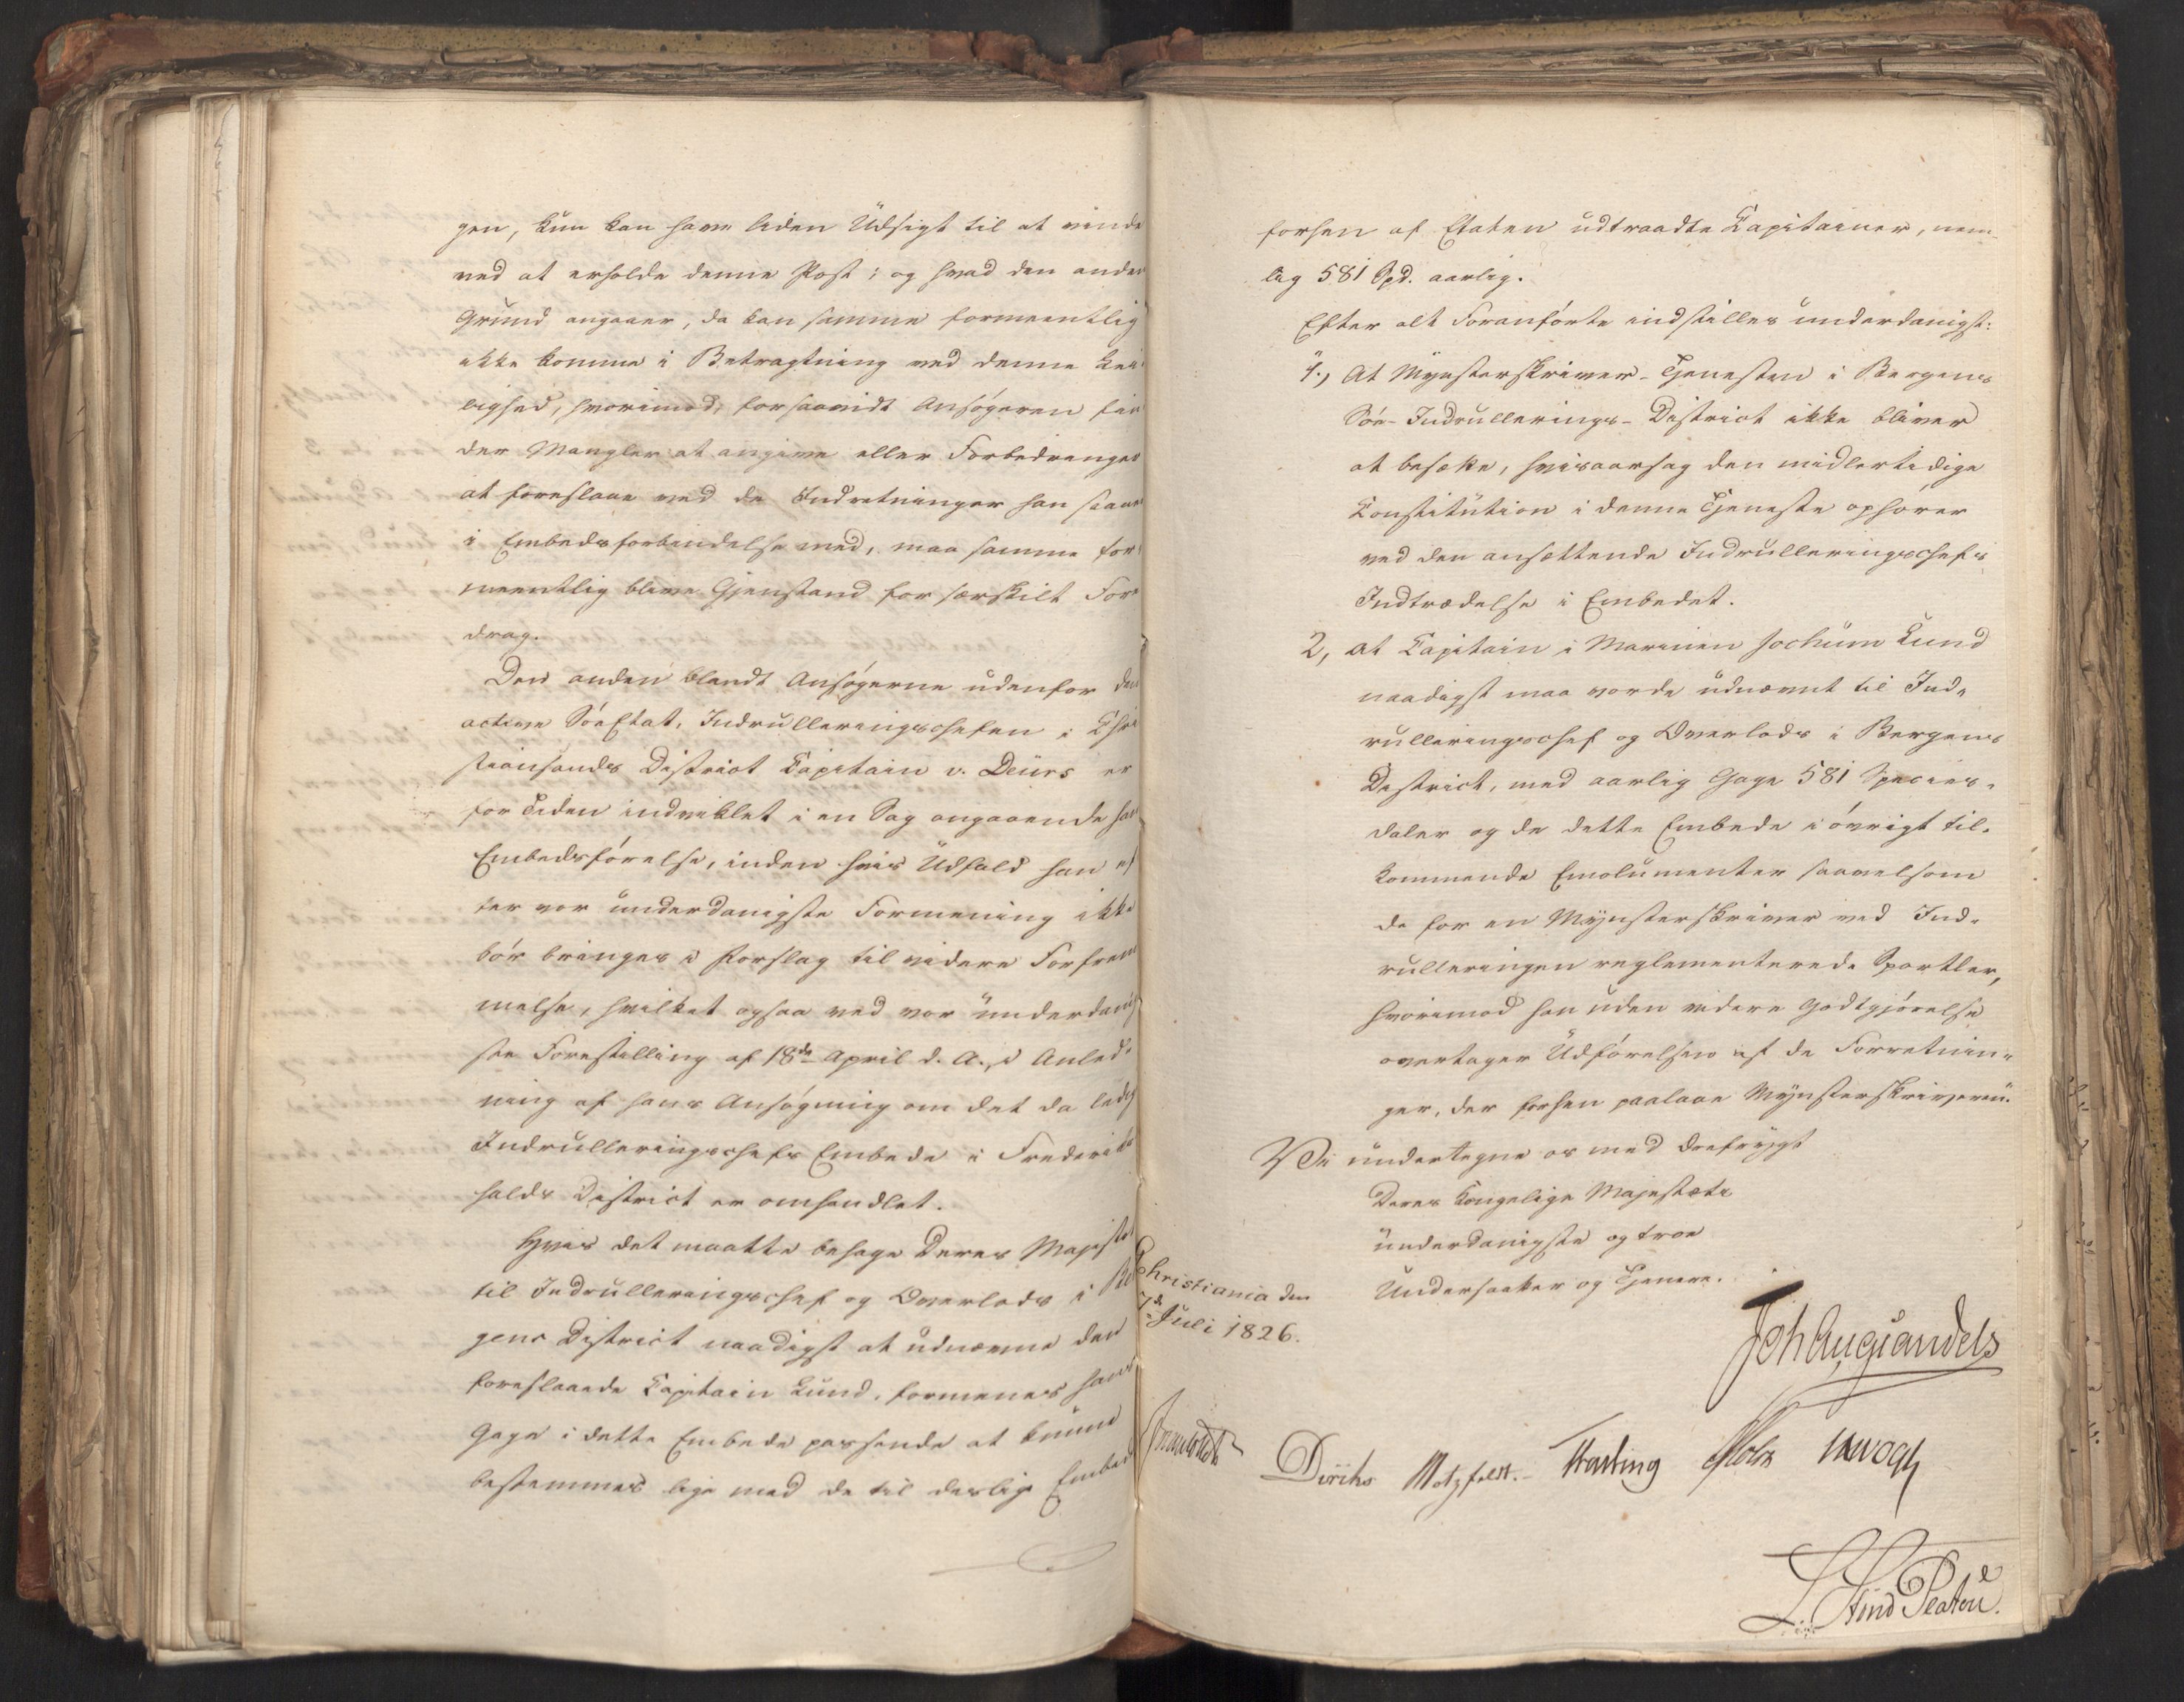 gen, kun kan have liden Udsigt til at vinde
ved at erholde denne Post; og hvad den anden
Grund angaaer, da kan samme formeentlig
ikke komme i Betragtning ved denne Lei-
lighed, hvorimod, forsaavidt Ansøgeren fin-
der Mangler at angive eller Forbedringer
at foreslaae ved de Indretninger han staaer
i Embedsforbindelse med, maa samme for-
meentlig blive Gjenstand for særskilt Fore-
drag.
Den anden blandt Ansøgerne udenfor den
active Søe Etat, Indrulleringschefen i Chri-
stiansands District Capitain v. Deurs er
for Tiden indviklet i en Sag angaaende hans
Embedsførelse, inden hvis Udfald han ef-
ter vor underdanigste Formening ikke
bør bringes i Forslag til videre Forfrem-
melse, hvilket ogsaa ved vor underdanig-
ste Forestilling af 18de April d. A., i Anled-
ning af hans Ansøgning om det da ledige
Indrulleringschefs Embede i Frederiks-
halds District er omhandlet.
Hvis det maatte behage Deres Majestæt
til Indrulleringschef og Overlods i Ber-
gens District naadigst at udnævne den
foreslaaede Capitain Lund, formenes hans
Gage i dette Embede passende at kunne
bestemmes lige med de til deslige Embeder
forhen af Etaten udtraadte Capitainer, nem-
lig 581 Spd. aarlig.
Efter alt Foranførte indstilles underdanigst:
1., At Mynsterskriver-Tjenesten i Bergens
Søe-Indrullerings-District ikke bliver
at besætte, hvisaarsag den midlertidige
Constitution i denne Tjeneste ophører
ved den ansættende Indrulleringschefs
Indtrædelse i Embedet.
2, at Capitain i Marinen Jochum Lund
naadigst maa vorde udnævnt til Ind-
rulleringschef og Overlods i Bergens
District, med aarlig Gage 581 Species-
daler og de dette Embede i øvrigt til-
kommende Emolumenter saavelsom
de for en Mynsterskriver ved Ind-
rulleringen reglementerede Sportler,
hvorimod han uden videre Godtgjørelse
overtager Udførelsen af de Forretnin-
ger, der forhen paalaae Mynsterskriveren.
Vi undertegne os med Ærefrygt
Deres Kongelige Majestæts
underdanigste og troe
Undersaatter og Tjenere.
Christiania den
7de Juli 1826.
Joh Aug Sandels
Diriks Motzfeldt. Fasting Holst
L. Stoud Platou.